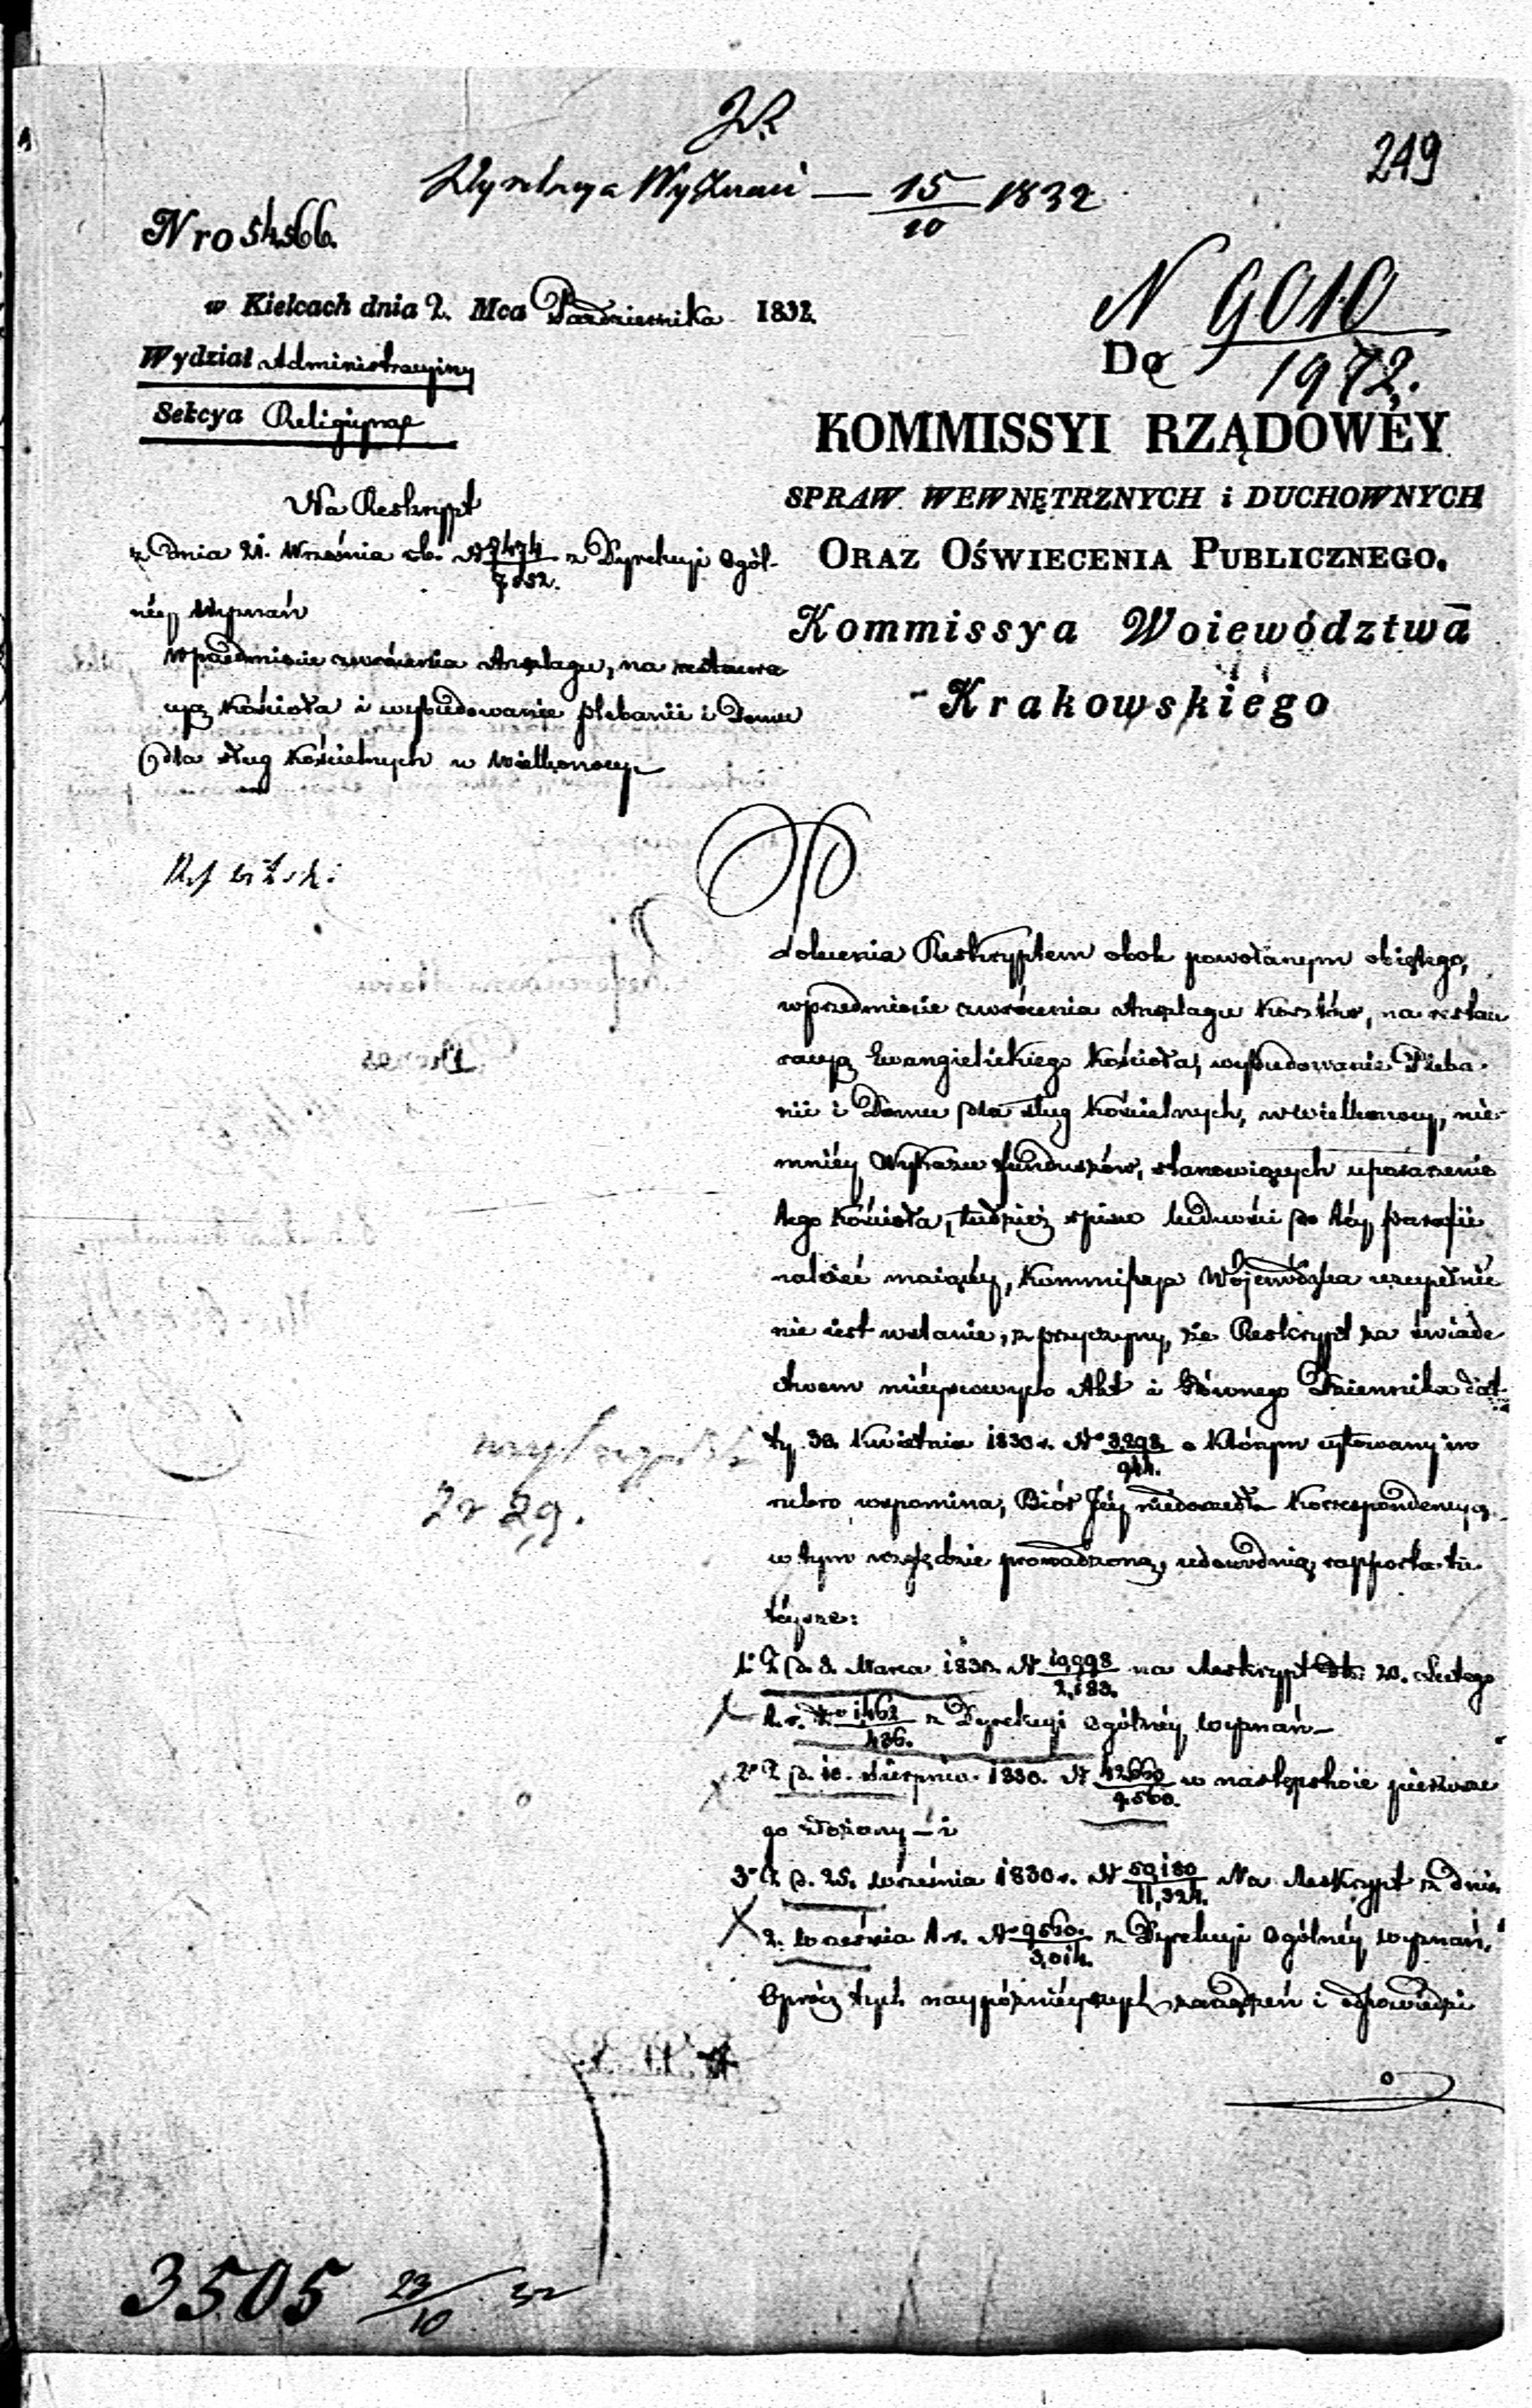 249
Dyrekcya Wyznań — 15/10 1832
Nro 54566.
w Kielcach dnia 2. Mca Października 1832.
N 9010/1972.
Wydział Administracyiny
Sekcya Religiyna
Do
KOMMISSYI RZĄDOWÉY
SPRAW WEWNĘTRZNYCH i DUCHOWNYCH
ORAZ OŚWIECENIA PUBLICZNEGO.
Kommissya Woiewództwa
Krakowskiego
Na Reskrypt
z dnia 21. Września rb. z Dyrekcyi Ogól-
néy Wyznań
w przedmiocie zwrócenia Anszlagu, na restaura
cyą Kościoła i wybudowanie plebanii i Domu
dla sług Kościelnych w Wielkonocy
Polecenia Reskryptem obok powołanym obiętego,
w przedmiocie zwrócenia Anszlagu Kosztów, na restau
racyą Ewangielickiego Kościoła, wybudowanie Pleba-
nii i Domu dla sług Kościelnych, w Wielkonocy, nie-
mniéy Wykazu funduszów, stanowiących uposażenie
tego Kościoła, tudzież spisu ludności do téy parafii
należeć maiącéy, Kommissya Wojewódzka uzupełnić
nie iest w stanie, z przyczyny, że Reskrypt za świade
ctwem mieyscowych Akt i Głównego Dziennika dat
ty 30. Kwietnia 1830 r. No 3298/944. o którym cytowany in
rubro wspomina, Biór Jéy niedoszedł. Korrespondencyą
w tym względzie prowadzoną, udowodnią rapporta tu
téysze:
1o Z d. 8. Marca 1830. N 19,998/2,183. na Reskrypt 20. Lutego
t. r. No 1462/486. z Dyrekcyi Ogólnéy Wyznań —
2o Z d. 10. Sierpnia 1830. N 42660/9.560. w następstwie pierwsze
go złożony — i
3o Z d. 25. Września 1830 r. N 50,180/11,324. Na Reskrypt z dnia
2. Września t. r. No 9560./3,014. z Dyrekcyi Ogólnéy Wyznań,
Oprócz tych naypóźniéyszych zarządzeń i odpowiedzi
2 r 29.
3505 23/10 32